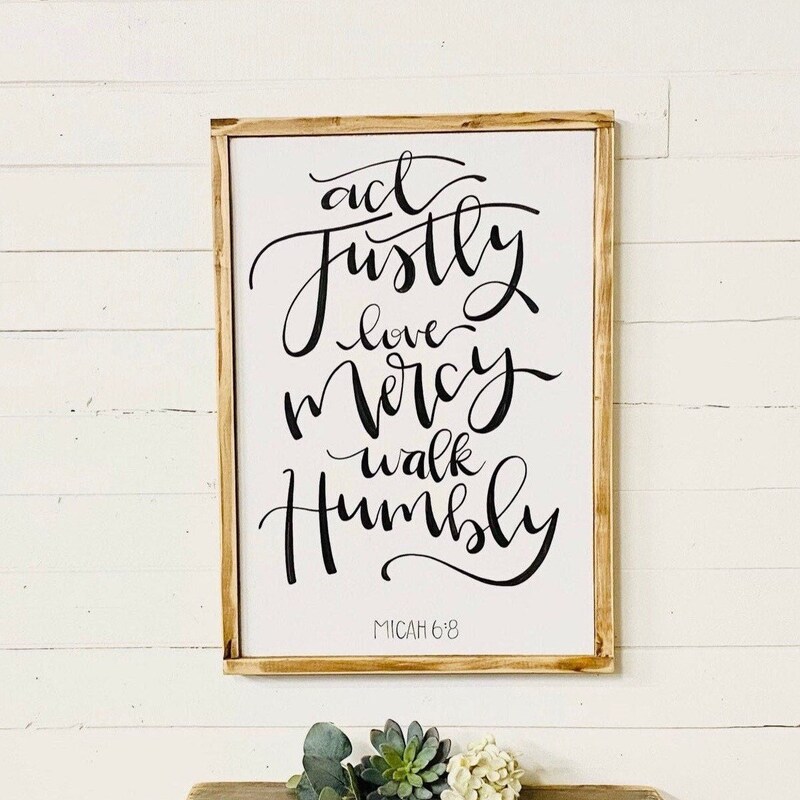 act
Justly
love
Mercy
walk
Humbly
MICAH 6:8